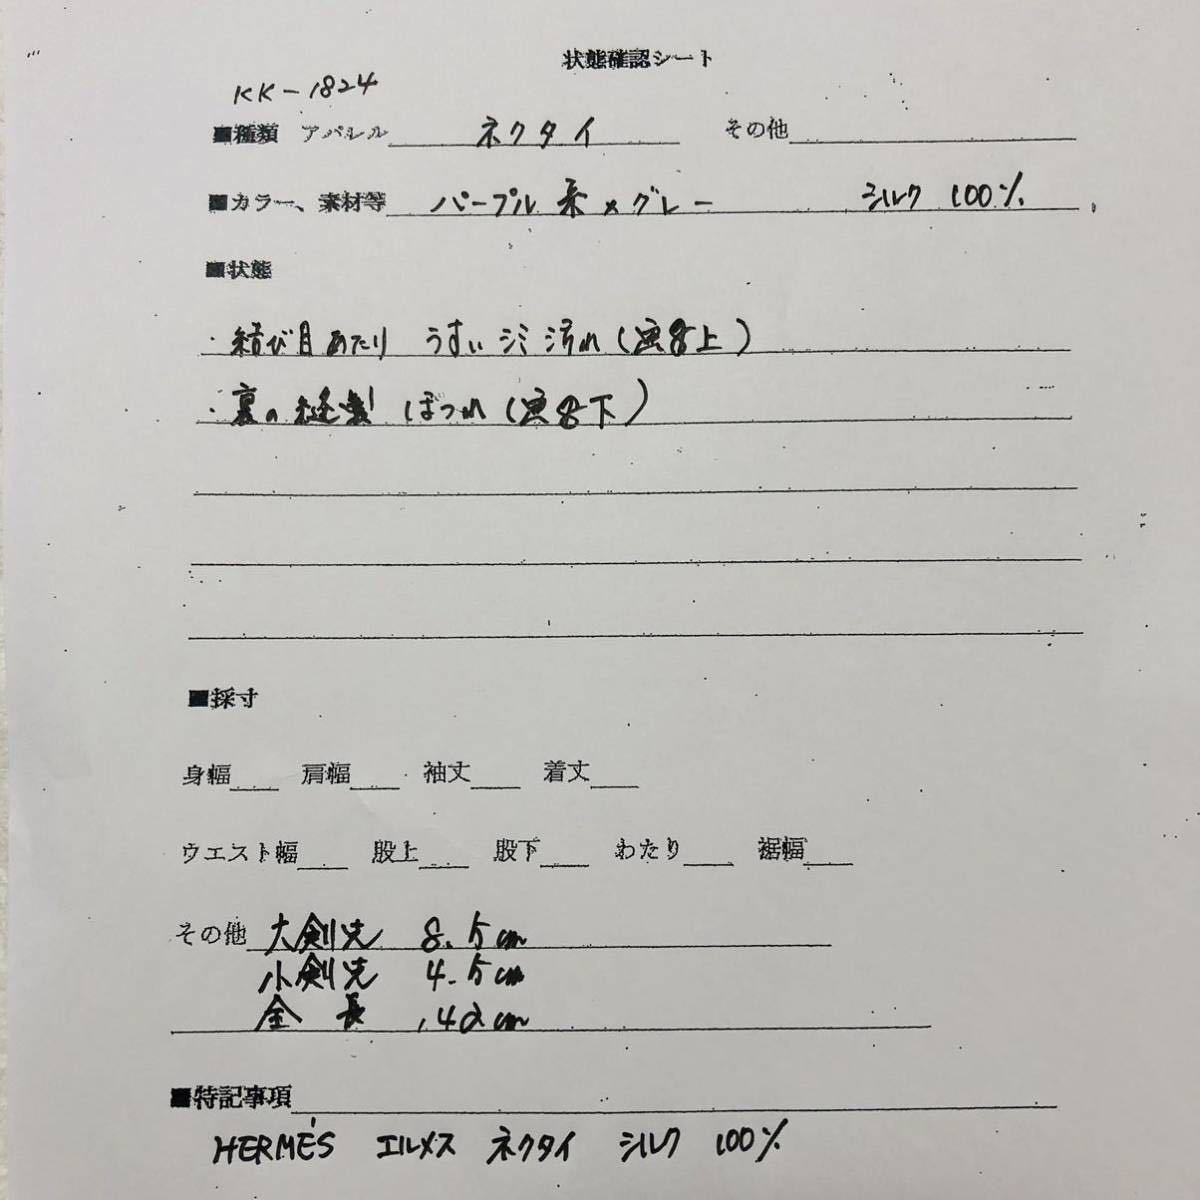 状態確認シート
KK-1824
■種類 アパレル ネクタイ その他
■カラー、素材等 パープル系×グレー シルク 100%
■状態
・結び目あたり うすいシミ汚れ(画像上)
・裏の縫製 ほつれ(画像下)
■採寸
身幅 肩幅 袖丈 着丈
ウエスト幅 股上 股下 わたり 裾幅
その他 大剣先 8.5cm
小剣先 4.5cm
全長 142cm
■特記事項
HERMÉS エルメス ネクタイ シルク 100%